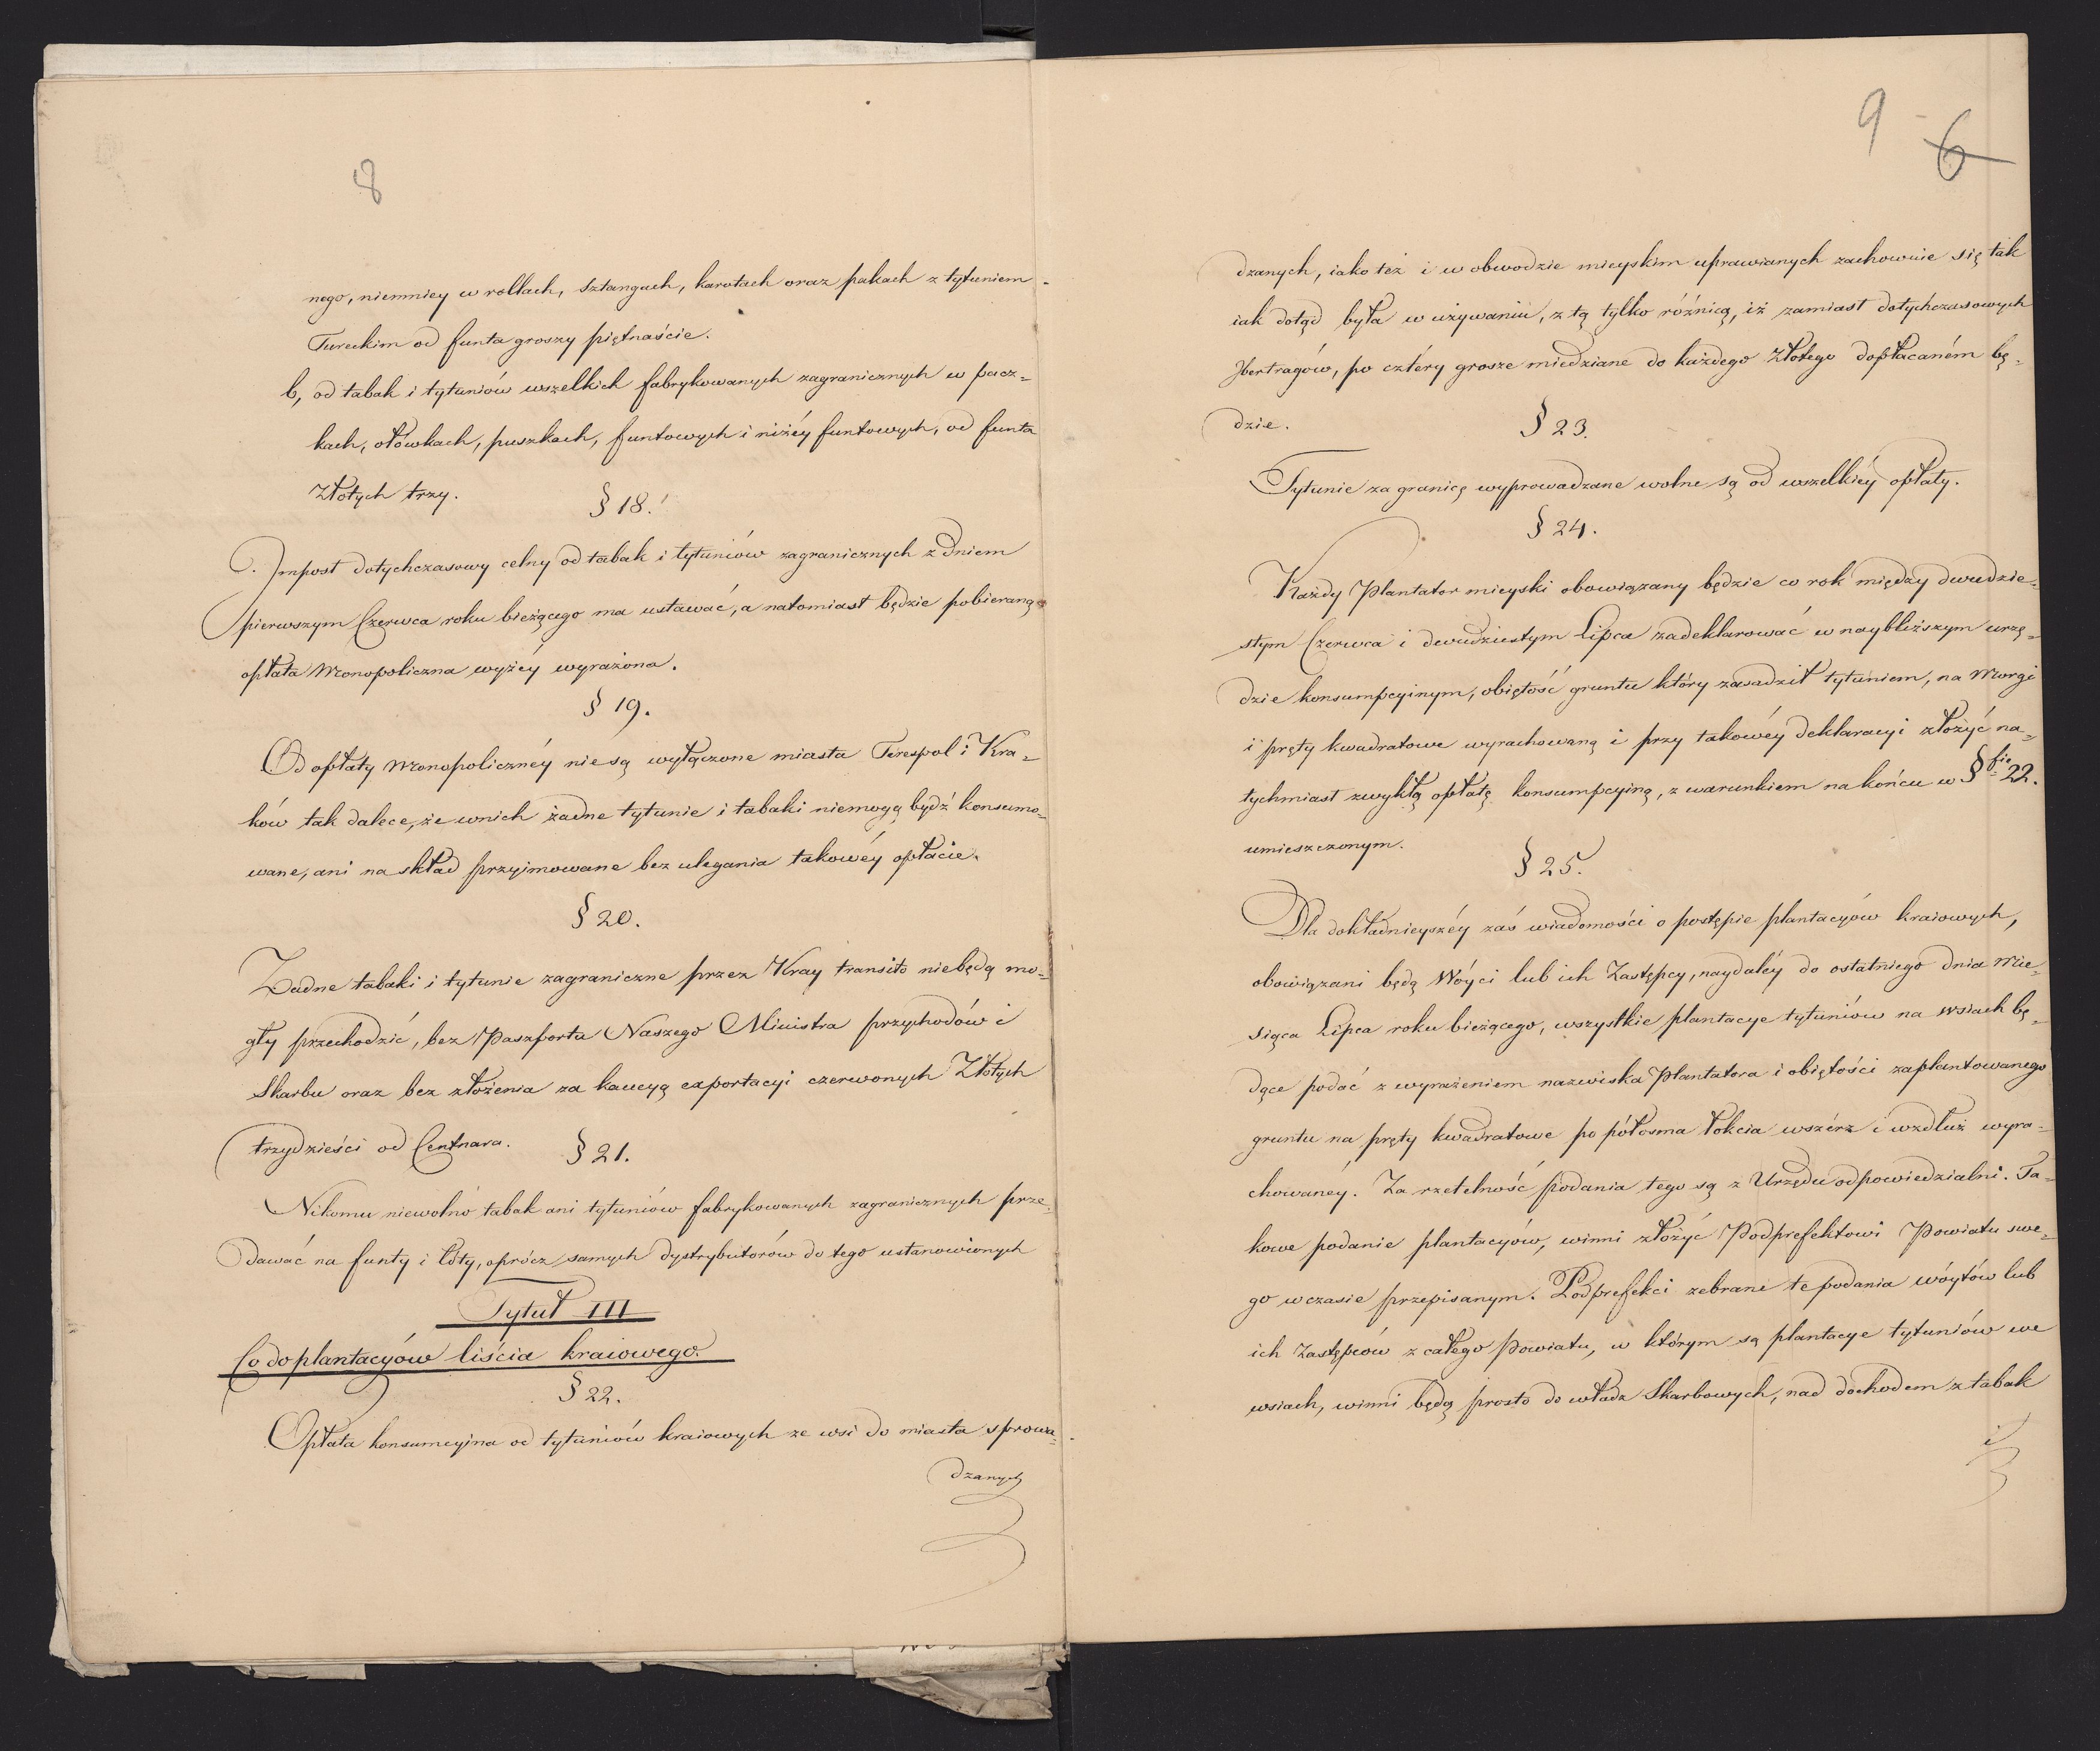 8
nego, niemniey w rollach, sztangach, karotach oraz pakach z tytuniem
Tureckim od funta groszy piętnaście.
b, od tabak i tytuniów wszelkich fabrykowanych zagranicznych w pacz=
kach, ołówkach, puszkach, funtowych i niżéy funtowych, od funta
złotych trzy.
§ 18.
Impost dotychczasowy celny od tabak i tytuniów zagranicznych z dniem
pierwszym Czerwca roku bieżącego ma ustawać, a natomiast będzie pobieraną
opłata Monopoliczna wyżéy wyrażona.
§ 19.
Od opłaty Monopolicznéy nie są wyłączone miasta Terespol i Kra=
ków tak dalece, że wnich żadne tytunie i tabaki niemogą bydź konsumo=
wane, ani na skład przyjmowane bez ulegania takowéy opłacie.
§ 20.
Żadne tabaki i tytunie zagraniczne przez Kray transito niebędą mo=
gły przechodzić, bez Paszportu Naszego Ministra przychodów i
Skarbu oraz bez złożenia za kaucyą exportacyi czerwonych Złotych
trzydzieści od Centnara.
§ 21.
Nikomu niewolno tabak ani tytuniów fabrykowanych zagranicznych prze=
dawać na funty i łóty, oprócz samych dystrybutorów do tego ustanowionych
Tytuł III
Co do plantacyów liścia kraiowego.
§ 22.
Opłata konsumcyjna od tytuniów kraiowych ze wsi do miasta sprowa=
dzanych
9 6
dzanych, iako też i w obwodzie mieyskim uprawianych zachownie się tak
iak dotąd była w używaniu, z tą tylko różnicą, iż zamiast dotychczasowych
Ibertragów, po cztéry grosze miedziane do każdego złotego dopłacaném bę=
dzie.
§ 23.
Tytunie za granicę wyprowadzane wolne są od wszelkiéy opłaty.
§ 24.
Każdy Plantator mieyski obowiązany będzie co rok między dwudzie=
stym Czerwca i dwudziestym Lipca zadeklarować w naybliższym urzę=
dzie konsumpcyinym, obiętość gruntu który zasadził tytuniem, na Morgi
i pręty kwadratowe wyrachowaną i przy takowéy deklaracyi złożyć na=
tychmiast zwykłą opłatę konsumpcyiną, z warunkiem na końcu w §fie 22.
umieszczonym.
§ 25.
Dla dokładnieyszéy zaś wiadomości o postępie plantacyów kraiowych,
obowiązani będą Wóyci lub ich Zastępcy, naydaléy do ostatniego dnia Mie=
siąca Lipca roku bieżącego, wszystkie plantacye tytuniów na wsiach bę=
dące podać z wyrażeniem nazwiska Plantatora i obiętości zaplantowanego
gruntu na pręty kwadratowe po półosma łokcia wszérz i wzdłuż wyra=
chowanéy. Za rzetelność podania tego są z Urzędu odpowiedzialni. Ta=
kowe podanie plantacyów, winni złożyć Podprefektowi Powiatu swe=
go w czasie przepisanym. Podprefekci zebrane te podania wóytów lub
ich Zastępców z całego Powiatu, w którym są plantacye tytuniów we
wsiach, winni będą prosto do władz Skarbowych, nad dochodem z tabak
i